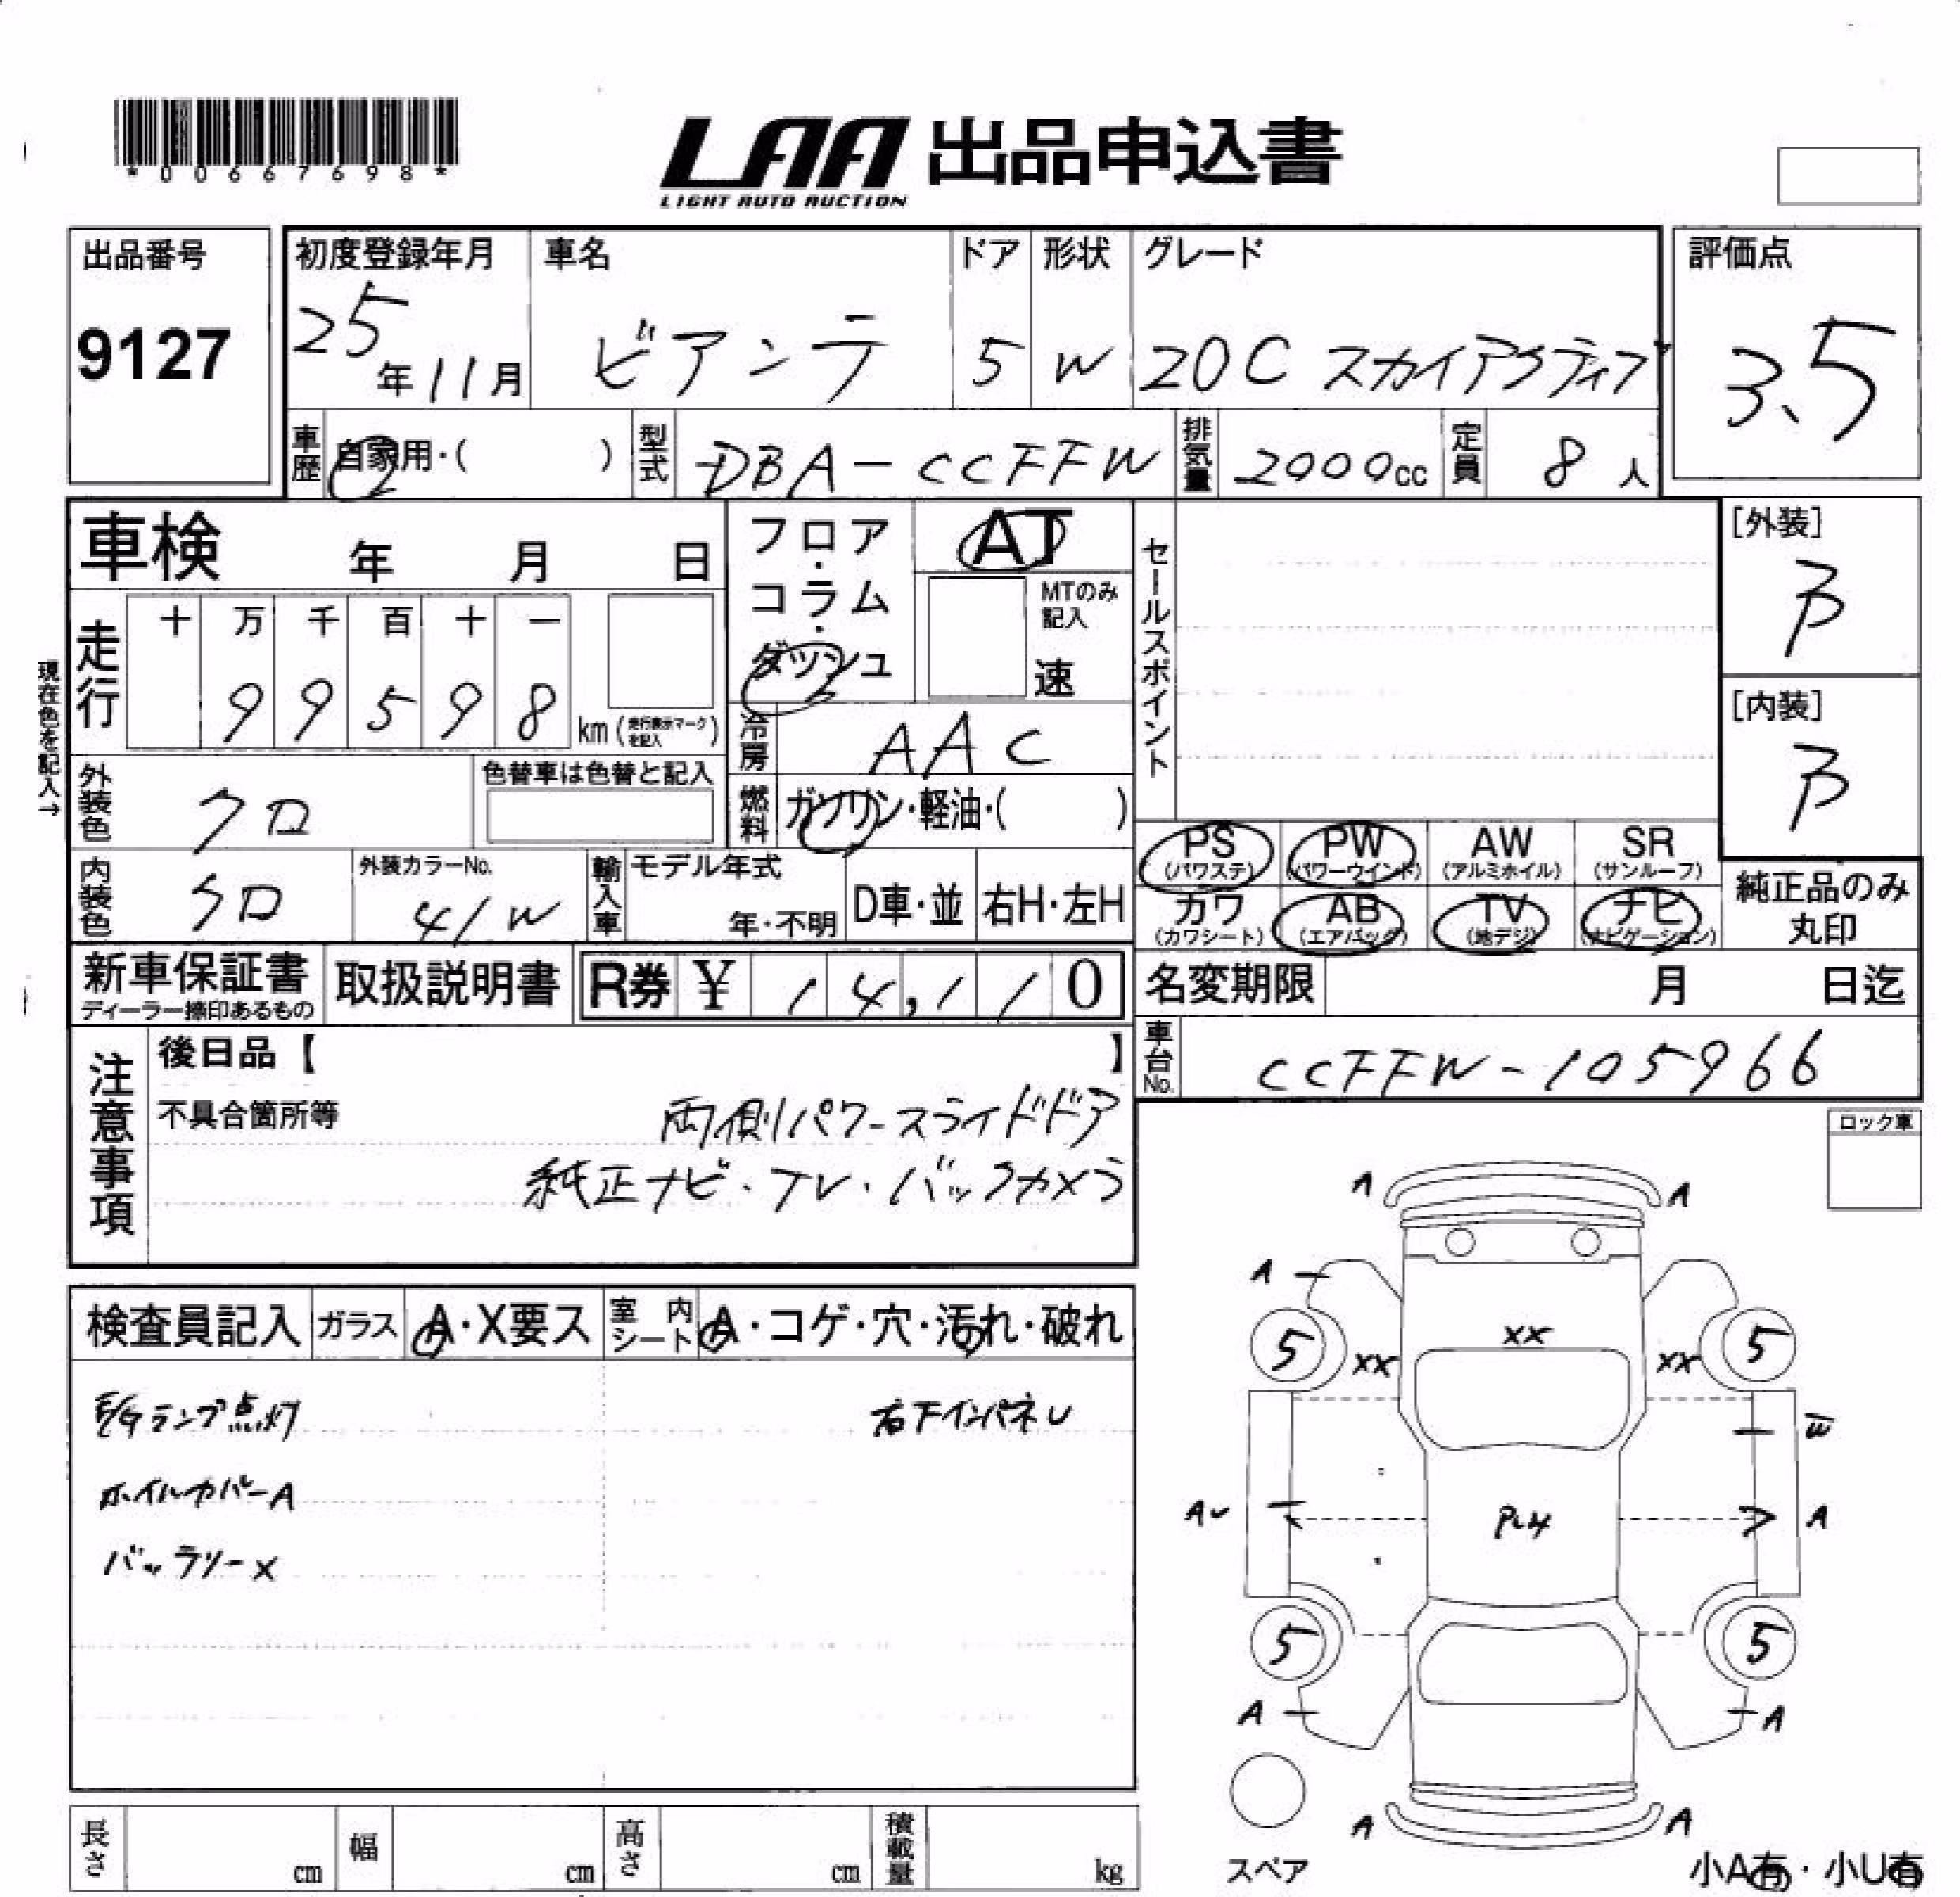 *00667698*
LAA 出品申込書
LIGHT AUTO AUCTION
出品番号
9127
初度登録年月
25年11月
車名
ビアンテ
ドア
5
形状
W
グレード
20C スカイアクティブ
評価点
3.5
車歴
自家用・( )
型式
DBA-CCFFW
排気量
2000cc
定員
8人
車検 年 月 日
フロア・コラム・ダッシュ
AT
MTのみ記入
速
セールスポイント
[外装]
B
[内装]
B
現在色を記入→
走行
十 万 千 百 十 一
9 9 5 9 8
km (走行表示マークを記入)
冷房
AAC
外装色
クロ
色替車は色替と記入
燃料
ガソリン・軽油・( )
内装色
クロ
外装カラーNo.
41W
輸入車
モデル年式
年・不明
D車・並
右H・左H
PS (パワステ)
PW (パワーウインド)
AW (アルミホイル)
SR (サンルーフ)
カワ (カワシート)
AB (エアバッグ)
TV (地デジ)
ナビ (ナビゲーション)
純正品のみ
丸印
新車保証書
ディーラー捺印あるもの
取扱説明書
R券 ¥ 14,110
名変期限 月 日迄
車台No.
CCFFW-105966
注意事項
後日品【 】
不具合箇所等
両側パワースライドドア
純正ナビ・TV・バックカメラ
ロック車
検査員記入
ガラス
A・X要ス
室内シート
A・コゲ・穴・汚れ・破れ
ランプ点灯
右下インパネU
ホイルカバーA
バッテリーX
A A
A
5 5
XX
XX XX
W
A
A
5 5
A A
A A
スペア
小A有・小U有
長さ cm
幅 cm
高さ cm
積載量 kg